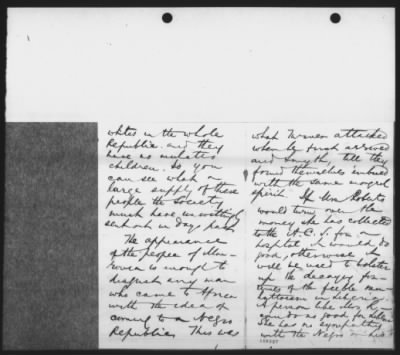 whites in the whole
Republic and they
have no mulatto
children. So you
can see what a
large supply of these
people the Society
must have in
sent out in days past.
The appearance
of the people of Mon-
rovia is enough to
disgust any man
who came to Africa
with the idea of
coming to a Negro
Republic. This was
what Turner attacked
when he first arrived
and Smyth, till they
found themselves imbued
with the same mongrel
spirit. If Mrs Roberts
would turn over the
money she has collected
to the A.C.S. for a
hospital, it would do
good, otherwise it
will be used to bolster
up the decayed for-
tunes of the feeble mu-
lattoism in Liberia.
A person like Mrs R.
can do no good for
She has no sympathy
with the Negro or his